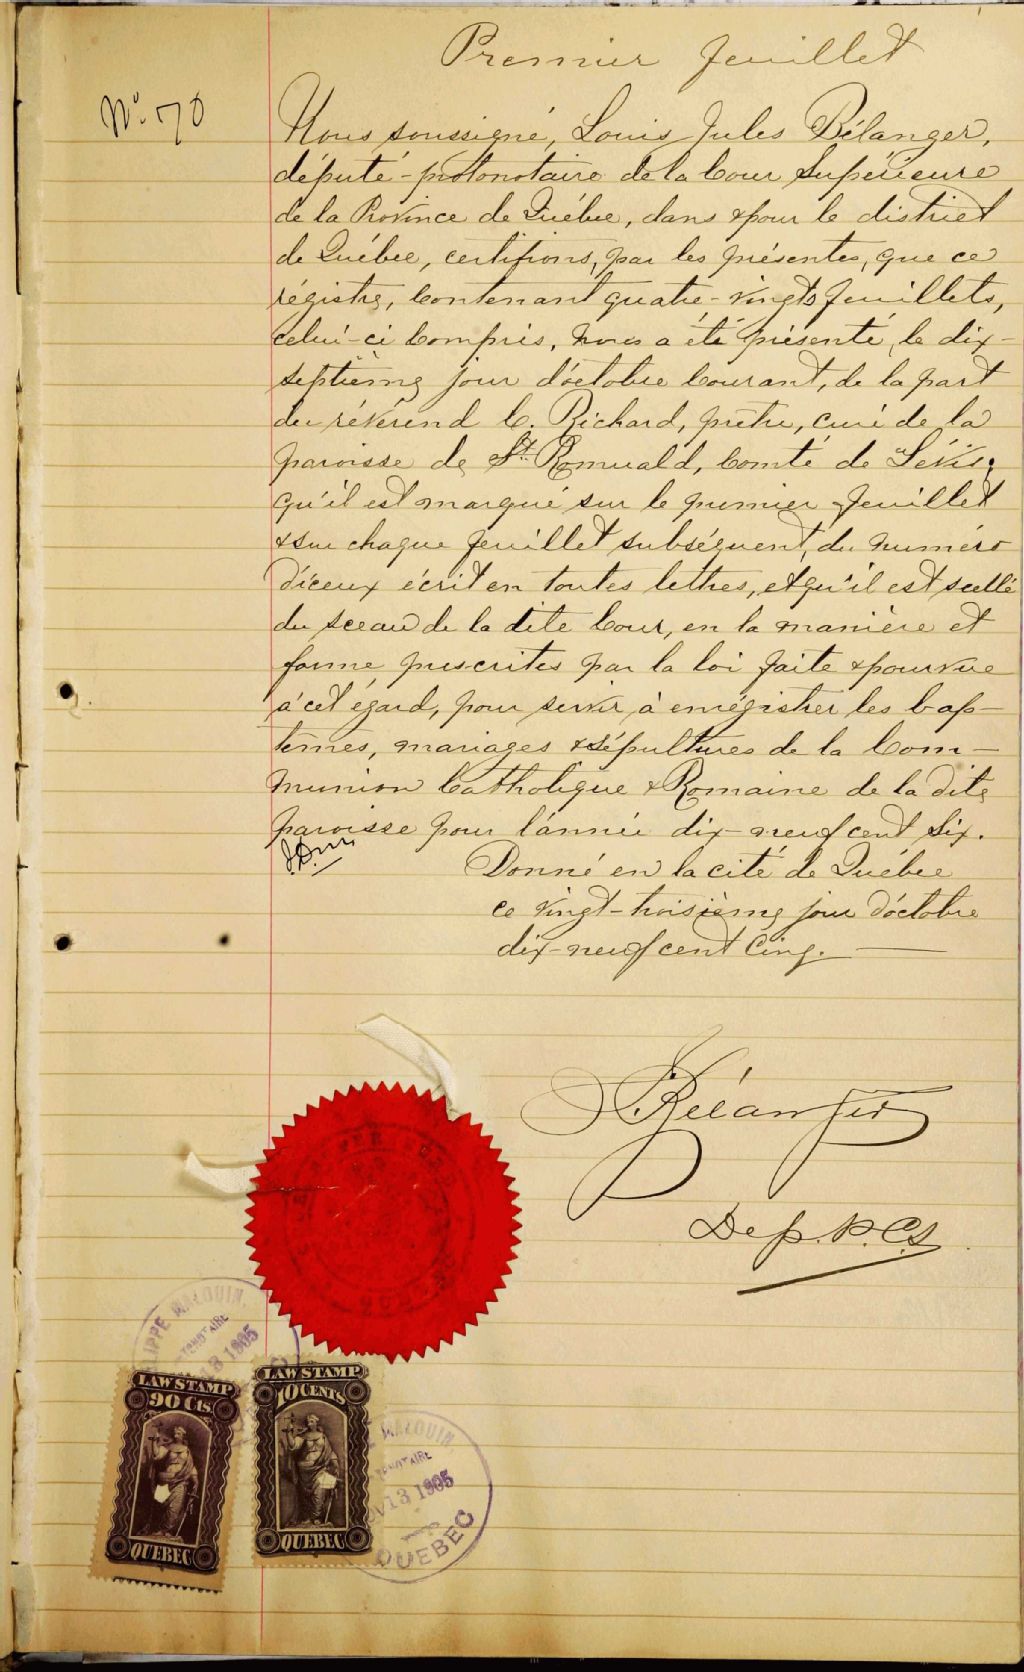 Premier feuillet
No. 70
Nous soussigné, Louis Jules Bélanger,
député-protonotaire de la Cour Supérieure
de la Province de Québec, dans & pour le district
de Québec, certifions, par les présentes, que ce
régistre, Contenant quatre-vingts feuillets,
celui-ci Compris, nous a été présenté, le dix-
septième jour d'octobre Courant, de la part
du révérend C. Richard, prêtre, curé de la
paroisse de St. Romuald, Comté de Lévis;
qu'il est marqué sur le premier feuillet
& sur chaque feuillet subséquent, du numéro
d'iceux écrit en toutes lettres, et qu'il est scellé
du sceau de la dite Cour, en la manière et
forme prescrites par la loi faite & pourvue
à cet égard, pour servir à enrégistrer les bap-
têmes, mariages & sépultures de la Com-
munion Catholique & Romaine de la dite
paroisse pour l'année dix-neuf cent six.
Donné en la cité de Québec
ce vingt-troisième jour d'octobre
dix-neuf cent Cinq.
Bélanger
Dep. P.C.S.
MALOUIN,
1905
LAW STAMP
90 Cts.
QUEBEC
LAW STAMP
10 CENTS
QUEBEC
MALOUIN,
13 1905
QUEBEC